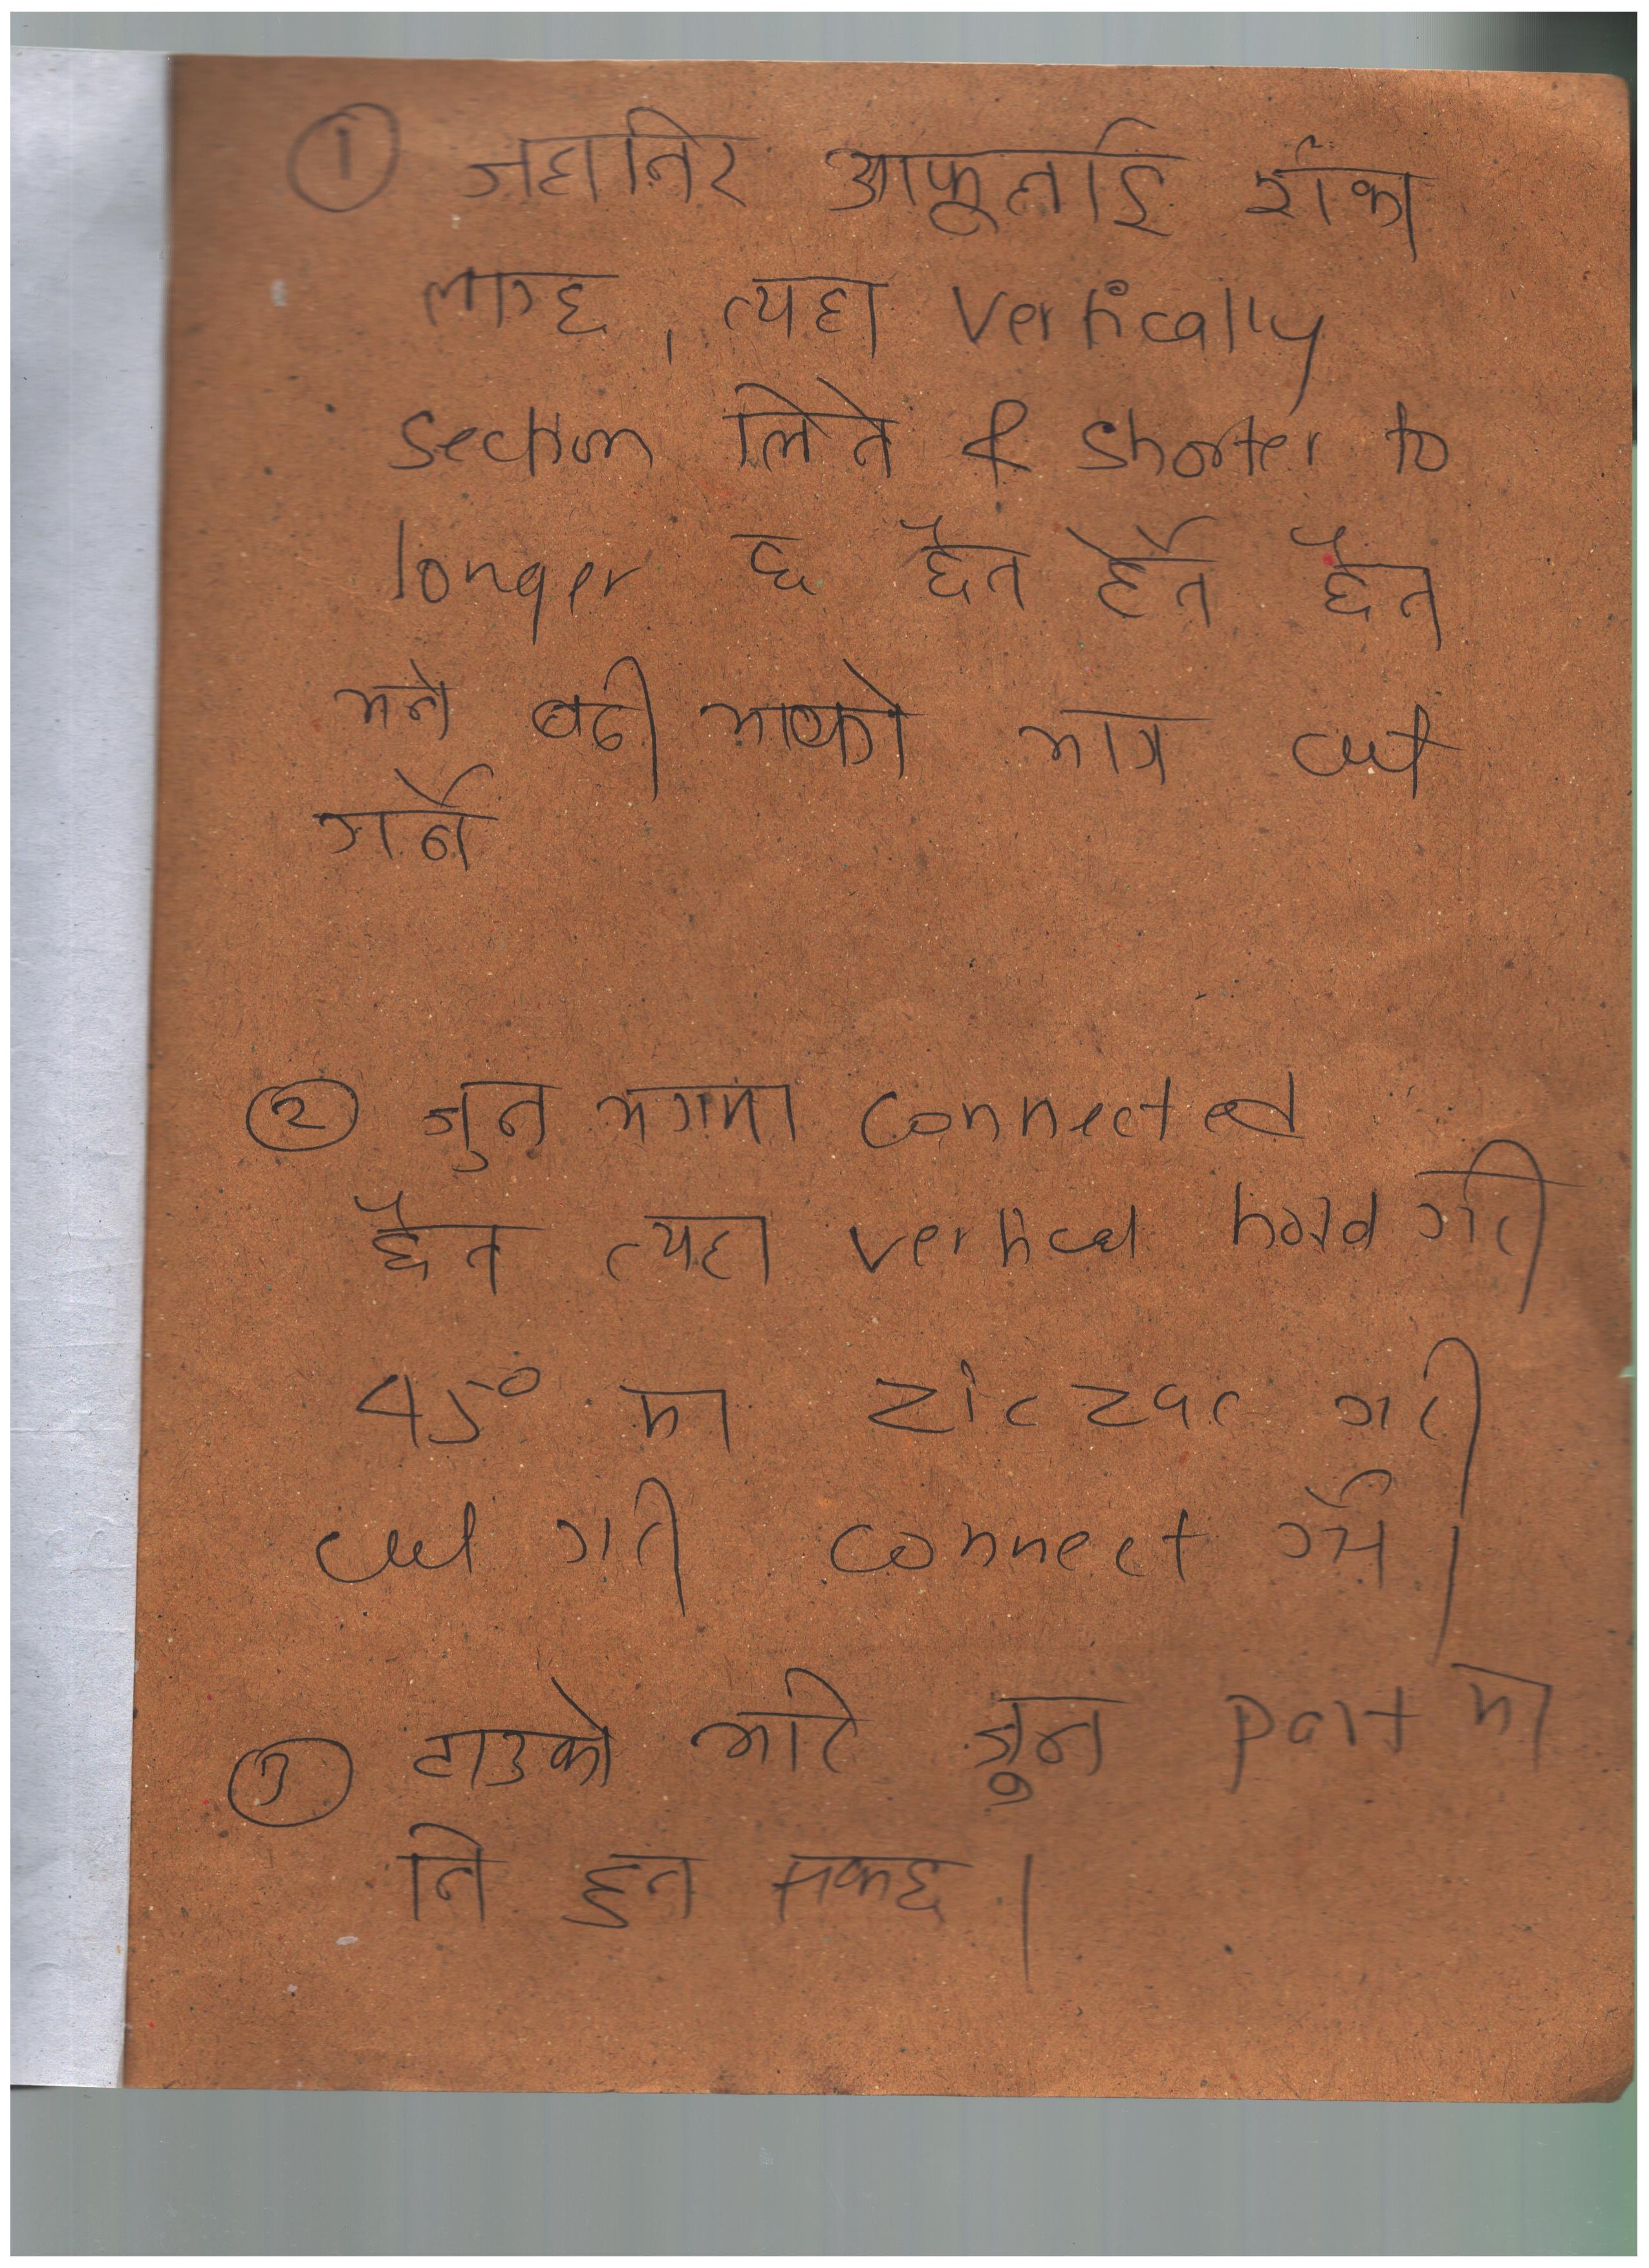 ① जहानिर आफूलाई शंका
लाग्छ, त्यहा vertically
section लिने & shorter to
longer छ छैन हेर्ने छैन
भने बढी भाएको भाग cut
गर्ने
② जुन भागमा connected
छैन त्यहा vertical hold गरी
45° मा ziczac गरी
cut गरी connect गर्ने।
③ टाउको भरि जुन part मा
नि हुन सक्छ।